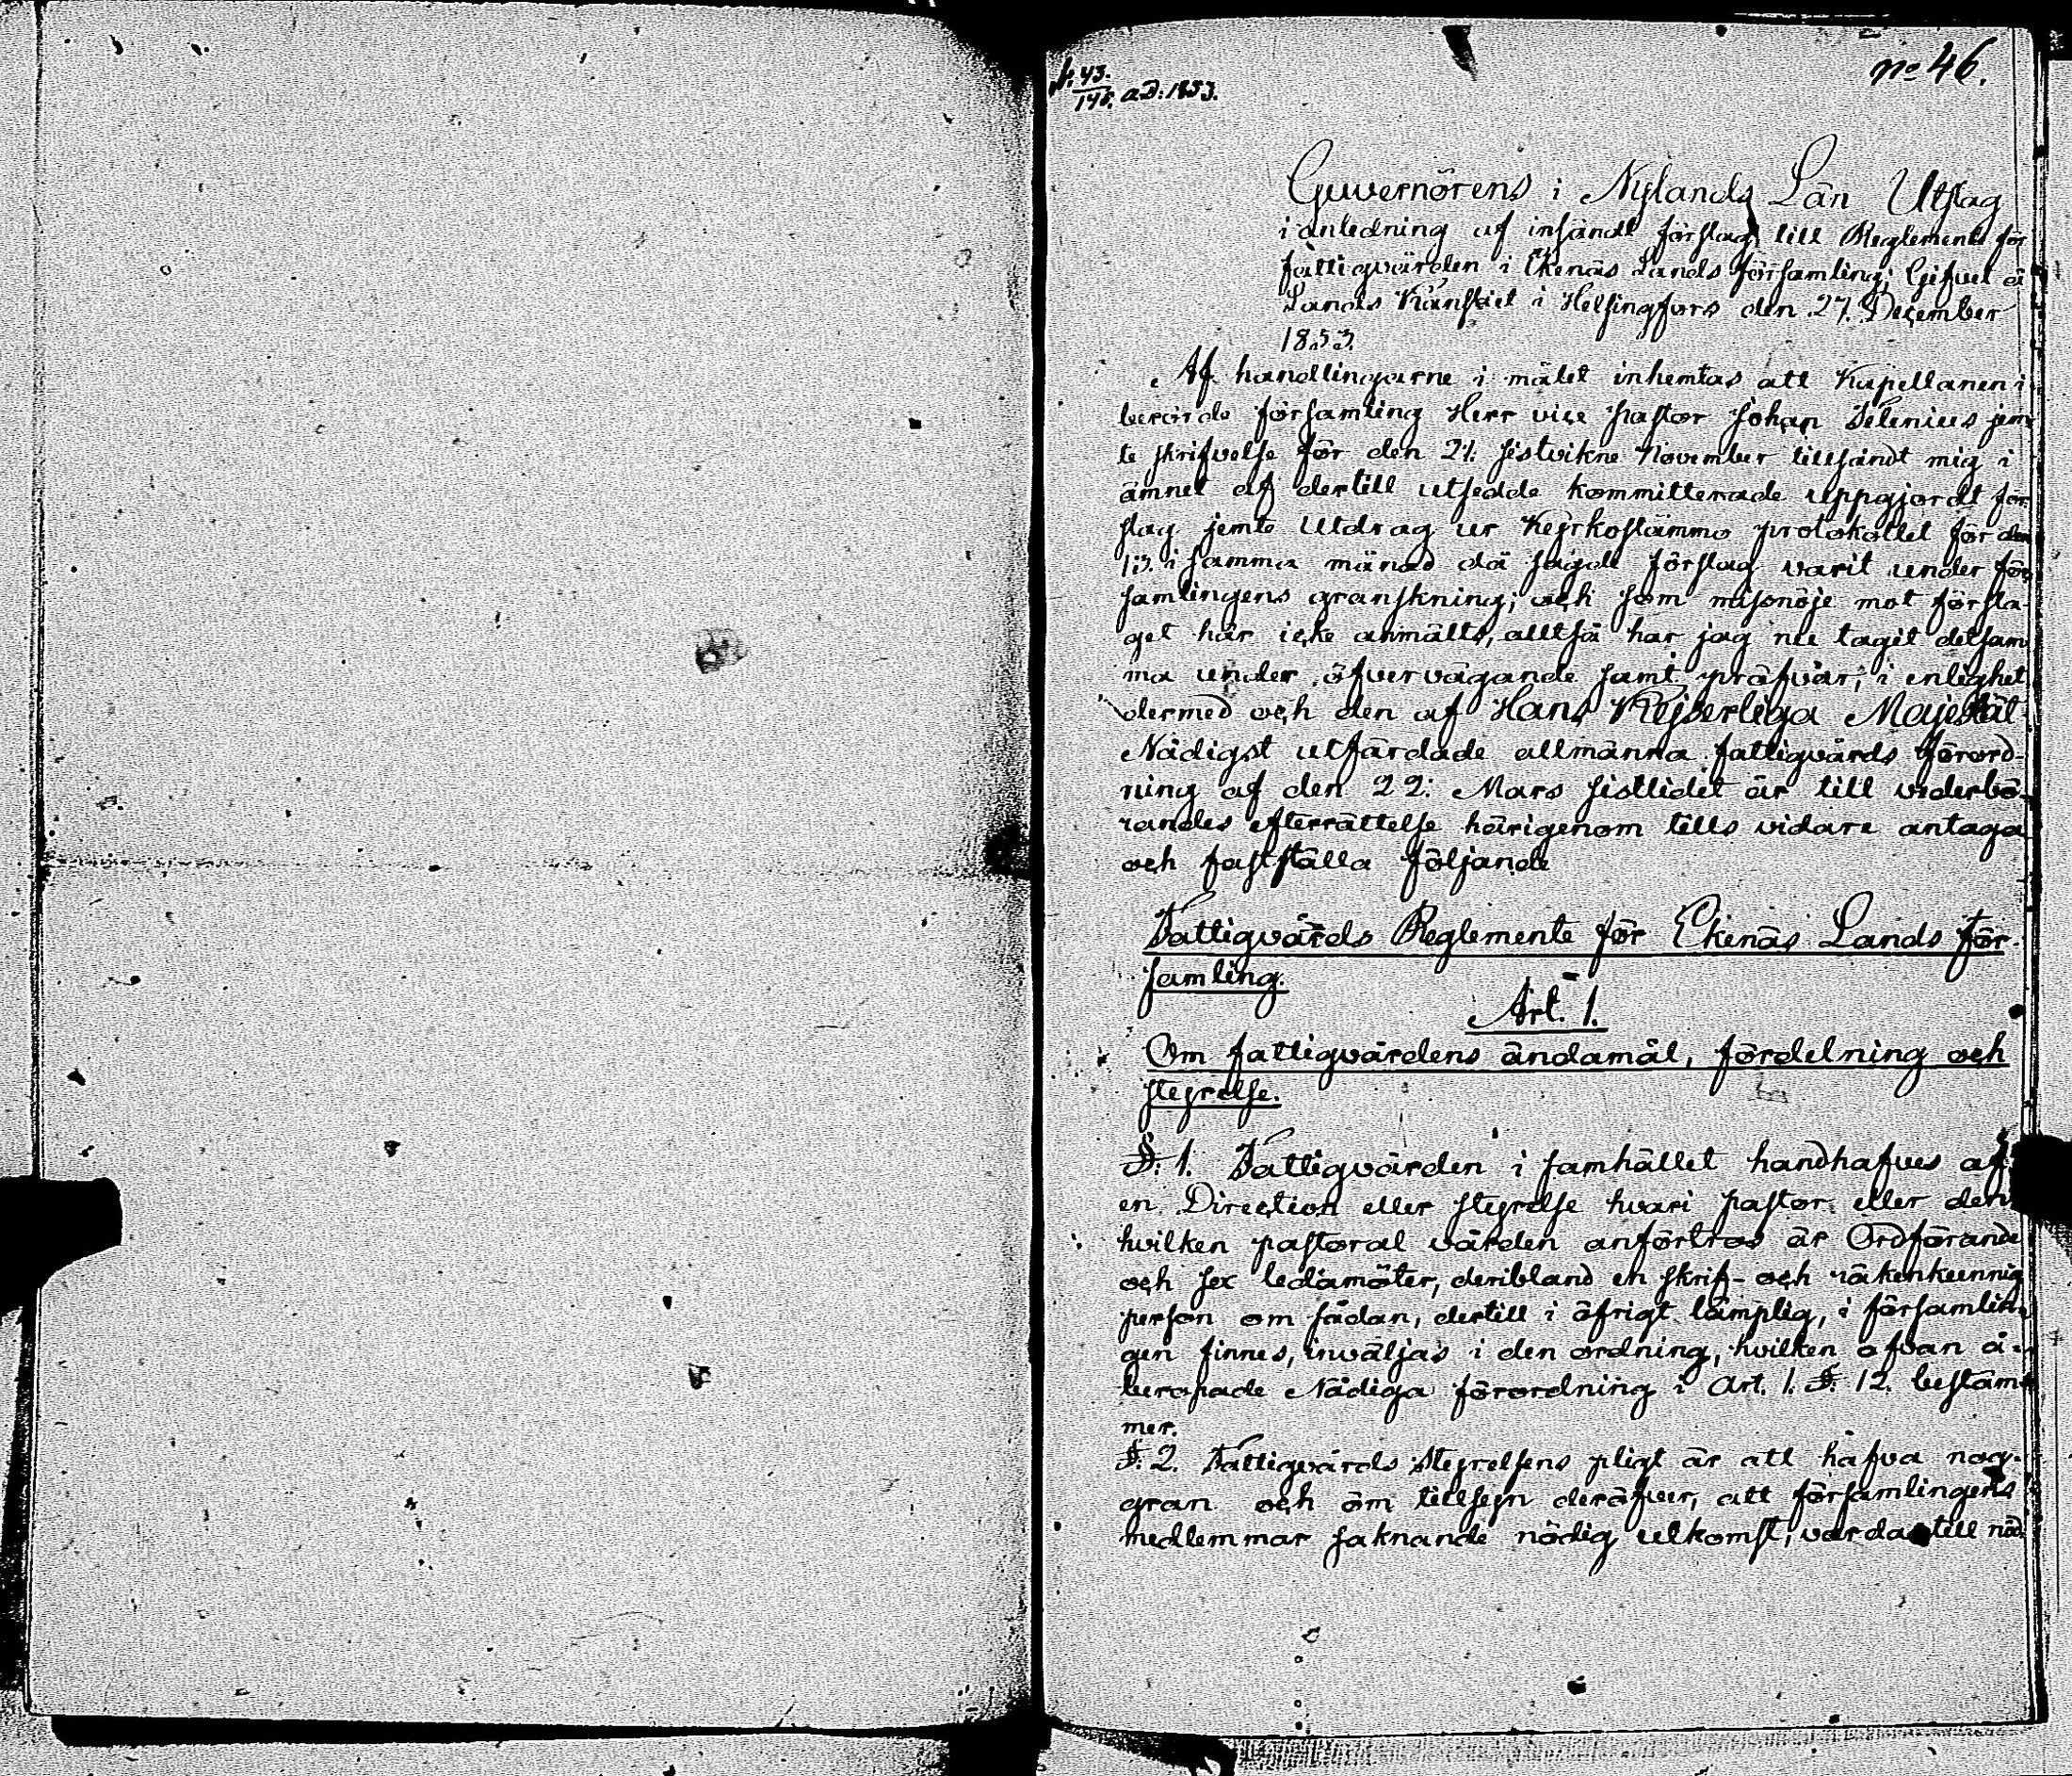 43.
145. a D: 1853.
no 46.
Guvernörens i Nylands Län Utslag
i anledning af insändt förslag till Reglemente för
fattigvården i Ekenäs Lands församling; Gifvet å
Lands Kansliet i Helsingfors den 27. December
1853.
Af handlingarne i målet inhemtas att Kapellanen i
berörde församling Herr vice pastor Johan Selenius jem-
te skrifvelse för den 21. sistvikne November tillsändt mig i
ämnet af dertill utsedde kommitterade uppgjordt för-
slag jemte Utdrag ur Kyrkostämmo protokollet för den
13. i samma månad då sagde förslag varit under för-
samlingens granskning; och som missnöje mot försla-
get här icke anmälts, alltså har jag nu tagit detsam-
ma under öfvervägande samt pröfvar, i enlighet
dermed och den af Hans Kejserliga Majestät
Nådigst utfärdade allmänna fattigvårds förord-
ning af den 22. Mars sistlidet år till vederbö-
randes efterrättelse härigenom tills vidare antaga
och fastställa följande
Fattigvårds Reglemente för Ekenäs Lands för-
samling.
Art. 1.
Om fattigvårdens ändamål, fördelning och
styrelse.
§. 1. Fattigvården i samhället handhafves af
en Direction eller styrelse hvari pastor eller den
hvilken pastoral vården anförtros är Ordförande
och sex ledamöter, deribland en skrif- och räkenkunnig
person om sådan, dertill i öfrigt lämplig, i församlin-
gen finnes, inväljas i den ordning, hvilken ofvan å-
beropade Nådiga förordning i Art. 1. §. 12. bestäm-
mer.
§. 2. Fattigvårds Styrelsens pligt är att hafva nog-
gran och öm tillsyn deröfver, att församlingens
medlemmar saknande nödig utkomst, varda till nöd